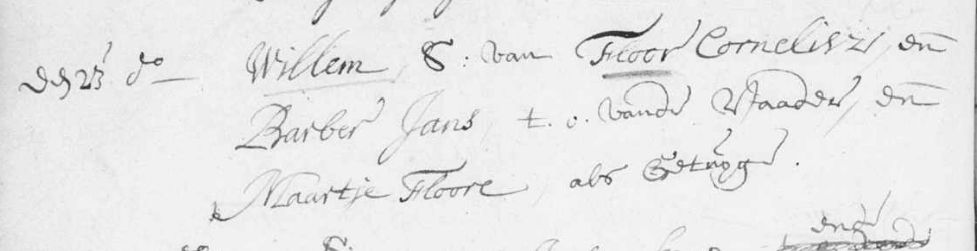 den 23 do Willem, S: van Floor Cornelisz, en
Barber Jans, t. o. vande Vaader, en
Maartje Floore, als Getuyge.